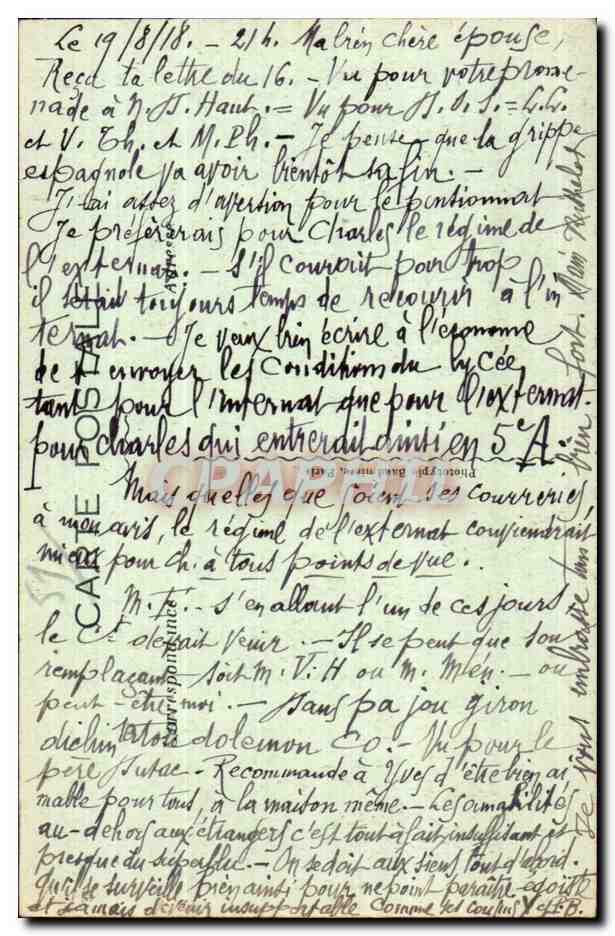 Le 19/8/18. - 21 h. Ma bien chère épouse,
Reçu ta lettre du 16. - Vu pour votre prome-
nade à N. D. Haut. = Vu pour
et V. Th. et M. Ph. - Je pense que la grippe
espagnole va avoir bientôt sa fin. -
J'ai assez d'aversion pour le pensionnat
Je préfèrerais pour Charles le régime de
l'externat. - S'il courait par trop
il serait toujours temps de recourir à l'in
ternat. - Je veux bien écrire à l'économe
de m'envoyer les Conditions du lycée,
tant pour l'internat que pour l'externat
pour Charles qui entrerait ainsi en 5e A.
Mais quelles que soient ses courreries,
à mon avis, le régime de l'externat conviendrait
mieux pour Ch. à tous points de vue. .
M. F. - s'en allant l'un de ces jours
le Ct devait venir. - Il se peut que son
remplaçant soit M. V. H ou M. Men. - ou
peut-être moi. - giron
Co. - Vu pour le
père - Recommande à Yves d'être bien ai
mable pour tous, à la maison même. - Les amabilités
au-dehors aux étrangers c'est tout à fait insuffisant et
presque du superflu. - On se doit aux siens tout d'abord.
Qu'il se surveille bien ainsi pour ne point paraître égoïste
et jamais devenir insupportable comme ses cousins Y et P.B.
Je vous embrasse tous bien fort.
CARTE POSTALE
Correspondance
Adresse
Phototypie Baudinière, Paris
CPAPHIL